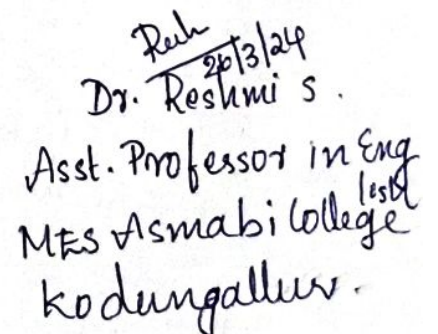 26/3/24
Dr. Reshmi S.
Asst. Professor in English
MES Asmabi College
Kodungallur.